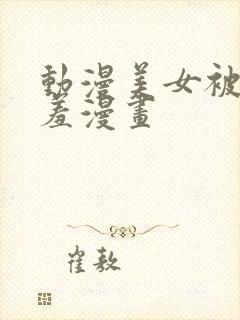 動漫美女被
羞漫畫
崔敖